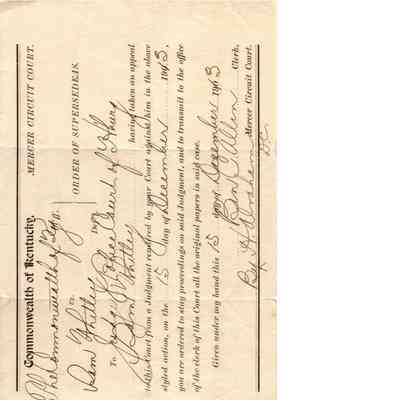 Commonwealth of Kentucky.
MERCER CIRCUIT COURT.
The Commonwealth of Ky
vs.
Sam Whitley Deft.
ORDER OF SUPERSEDEAS.
To Judge Police Court of
Sam Whitley having taken an appeal
to this Court from a Judgment rendered by your Court against him in the above
styled action, on the 15 day of December 1903,
you are ordered to stay proceedings on said Judgment, and to transmit to the office
of the clerk of this Court all the original papers in said case.
Given under my hand this 15 December 1903
Ben Allen Clerk,
Mercer Circuit Court.
By D.C.